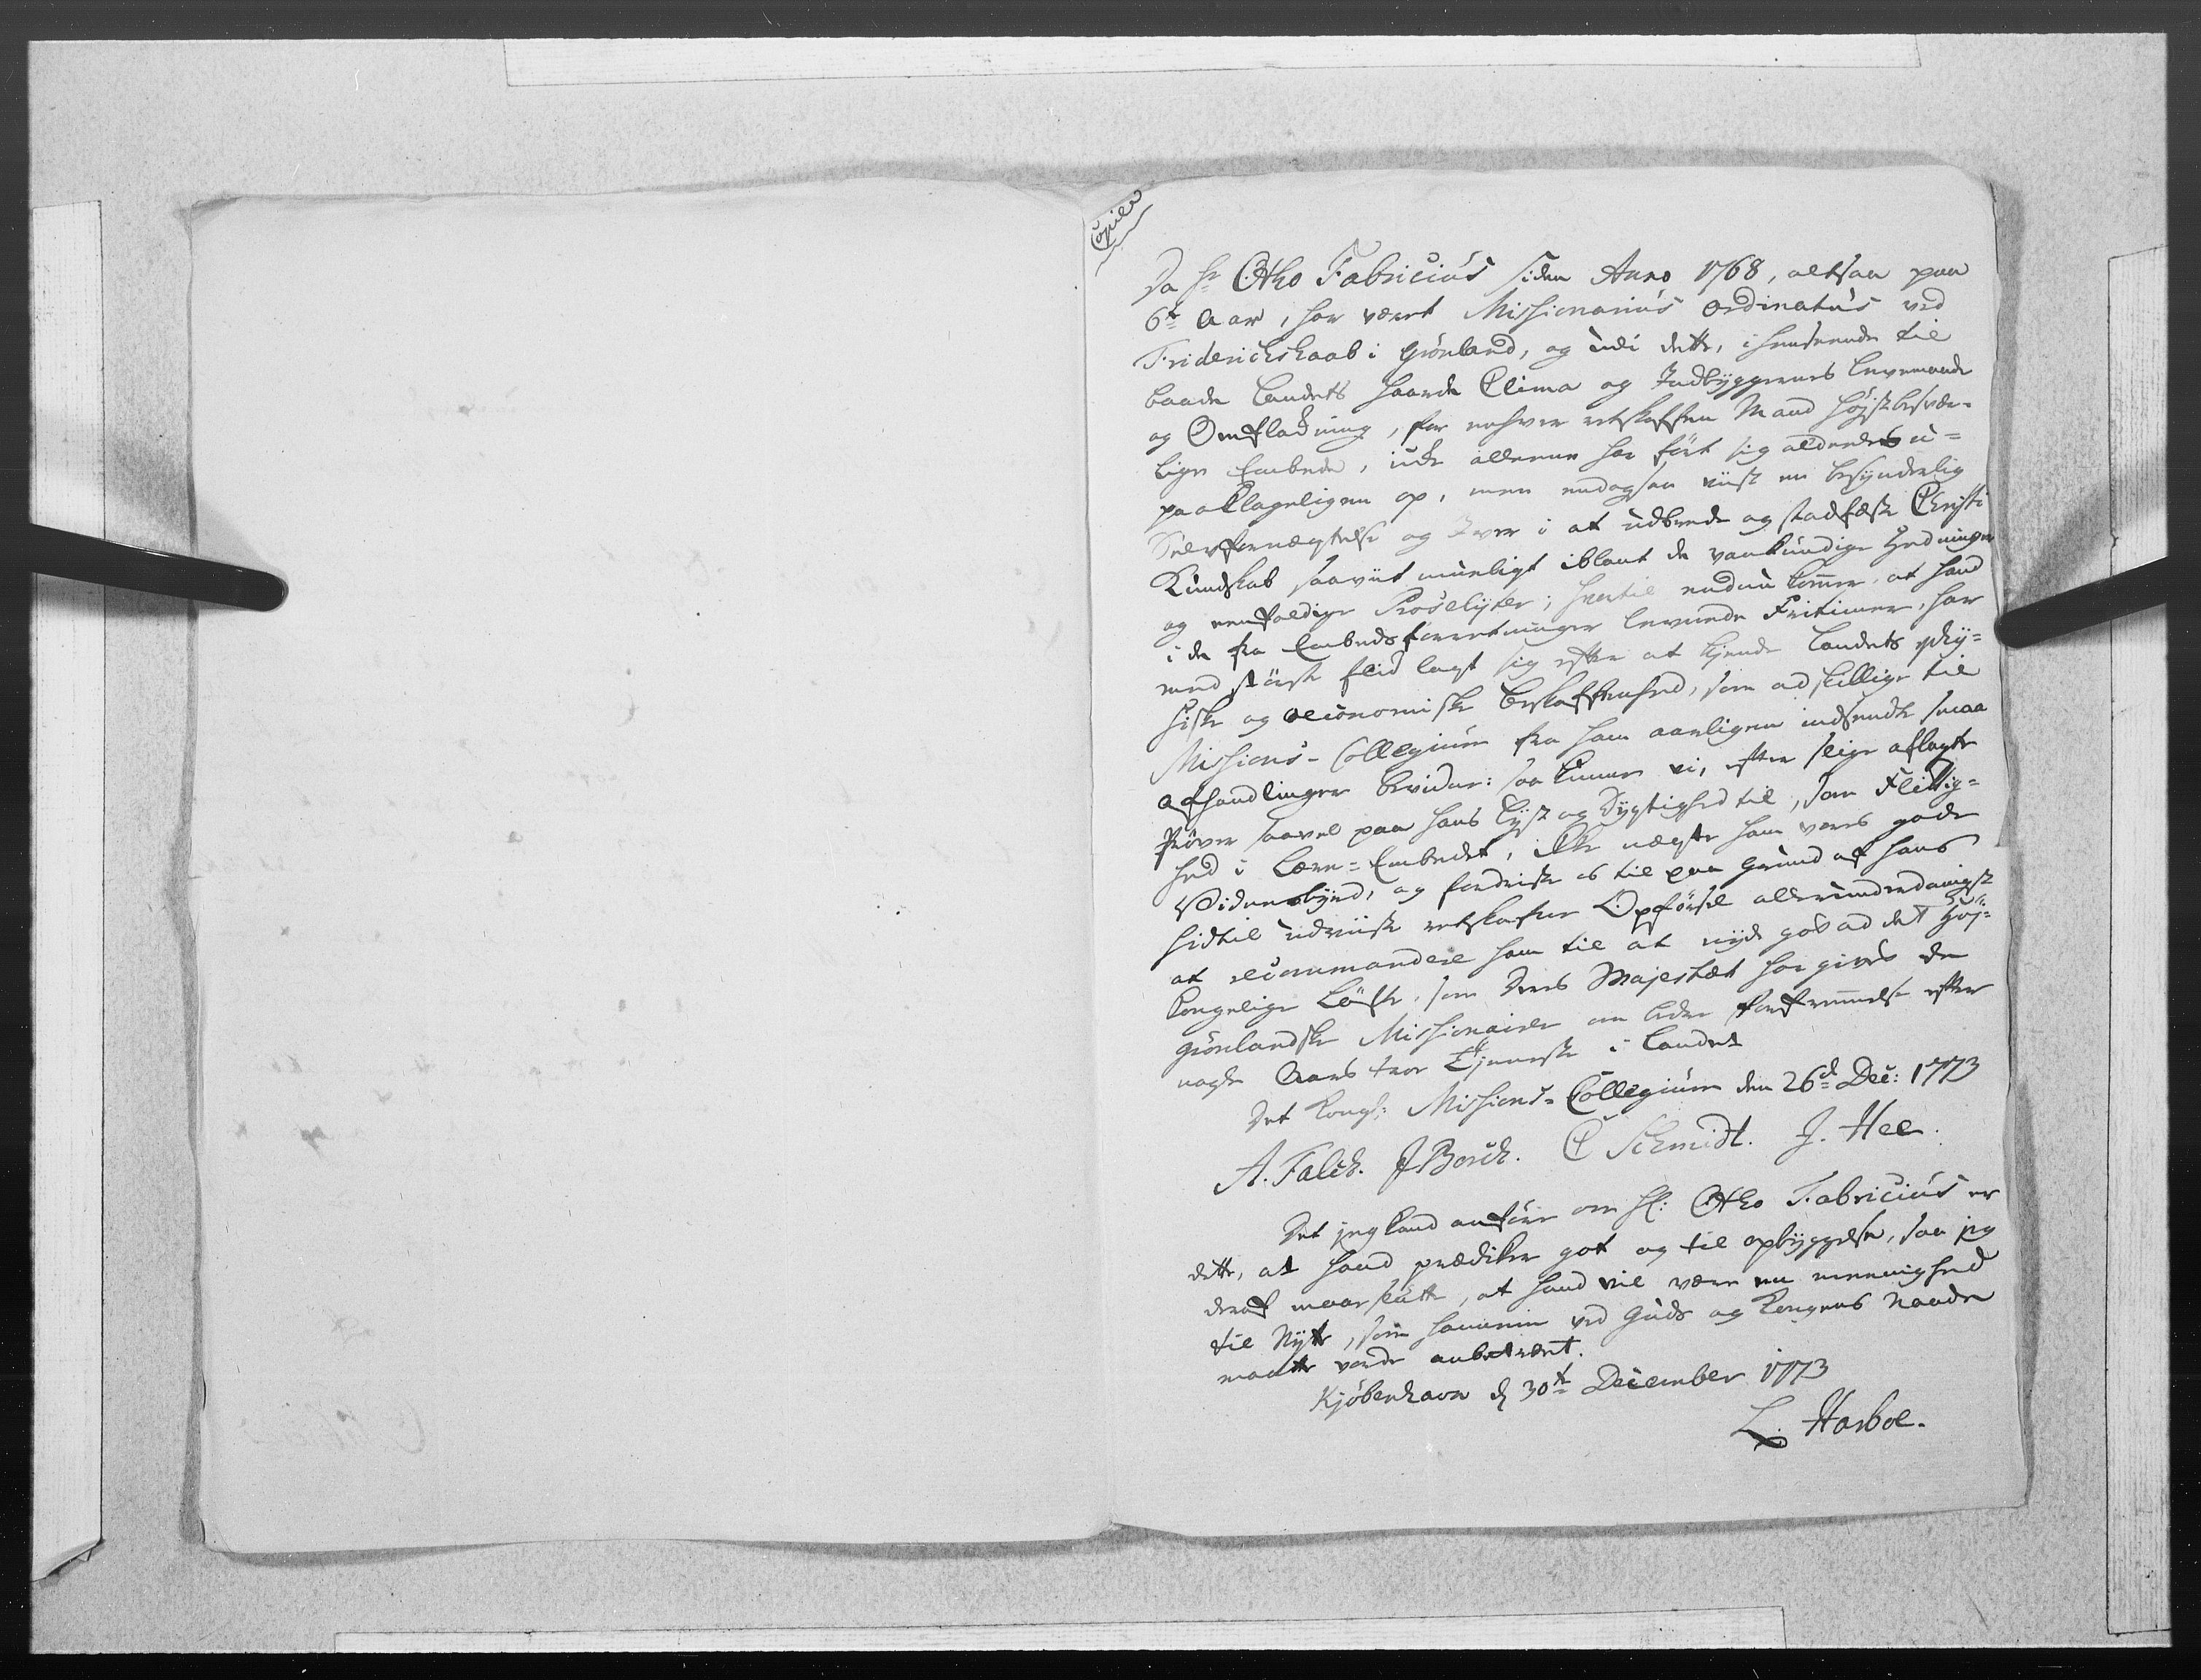 Copier
Da Hr Otho Fabricius siden Anno 1768, altsaa paa
6te Aar, har været Missionarius ordinatus ved
Friderichshaab i Grönland, og udi dette, i henseende til
baade Landets haarde Clima og Indbyggernes Levemaade
og Omflakning, for enhver retskaffen Mand højstbesvær-
lige Embede, icke alleene har fört sig aldeeles u-
paaklageligen op, men endogsaa viist en besynderlig
Selvfornægtelse og Iver i at udbrede og stadfæste Christi
Kundskab saavit mueligt iblant de vankundige Hedninger
og eenfoldige Proselyter; hvortil endnu kom̄er, at hand
i de fra Embedsforretninger levnede Fritimer, har
med störste flid lagt sig efter at kjende Landets phy-
siske og oeconomiske Beskaffenhed, som adskillige til
Missions-Collegium fra ham aarligen indsendte smaa
Afhandlinger bevidne: saa kunne vi, efter slige aflagte
Pröver saavel paa hans Lyst og Dygtighed til, som Flittig-
hed i Lære-Embedet, ikke nægte ham vores gode
Vidnesbyrd, og fordriste os til paa Grund af hans
hidtil udviiste retskafne Opförsel allerunderdanigst
at recommandere ham til at nyde godt ad det Høj-
kongelige Löfte, som Deres Majestæt har givet de
grönlandske Missionairer om bedre forfrem̄else efter
nogle Aars troe Tjeneste i Landet
Det Kongl: Missions-Collegium den 26de Dec: 1773
A. Falck. J Borch. C Schmidt. J. Hee.
Det jeg kand anföre om Hr: Otho Fabricius er
dette, at hand prædiker got og til opbyggelse, saa jeg
deraf maae slutte, at hand vil være en meenighed
til Nytte, som hannem ved Guds og Kongens Naade
maatte vorde anbetroet.
Kjöbenhavn d 30te December 1773
L. Harboe.